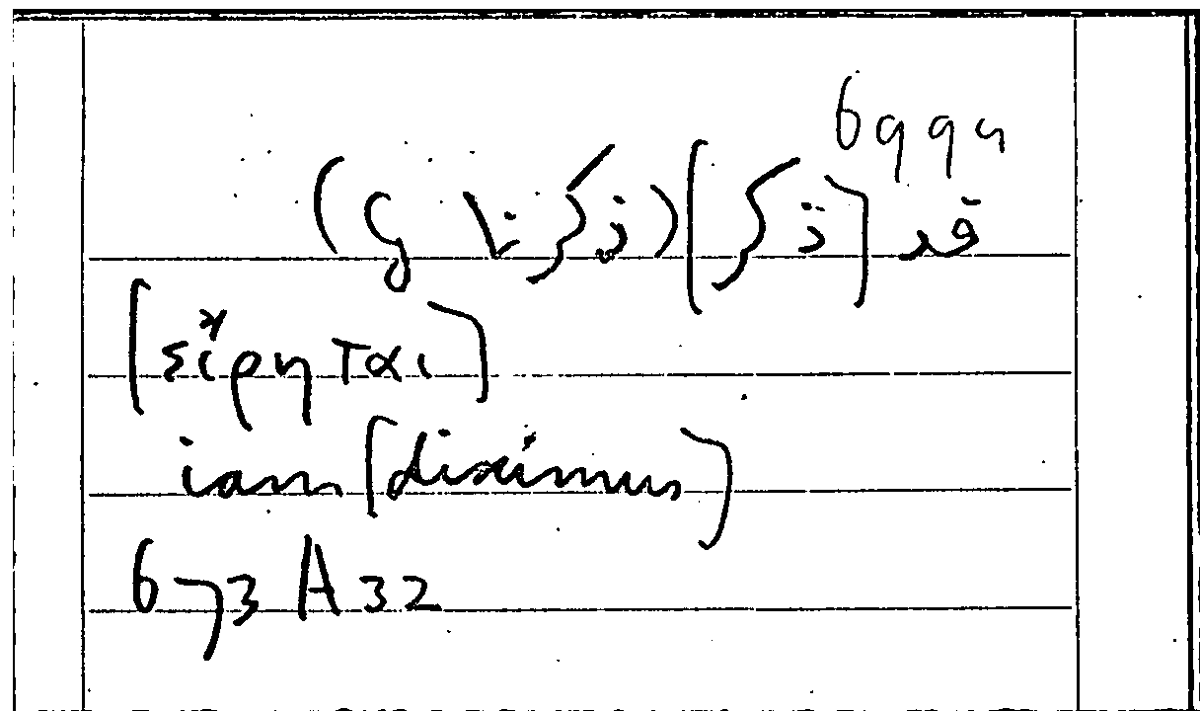 6999
قد [ذكر] (ذكرنا گ)
[εἴρηται]
iam [diximus]
673 A 32